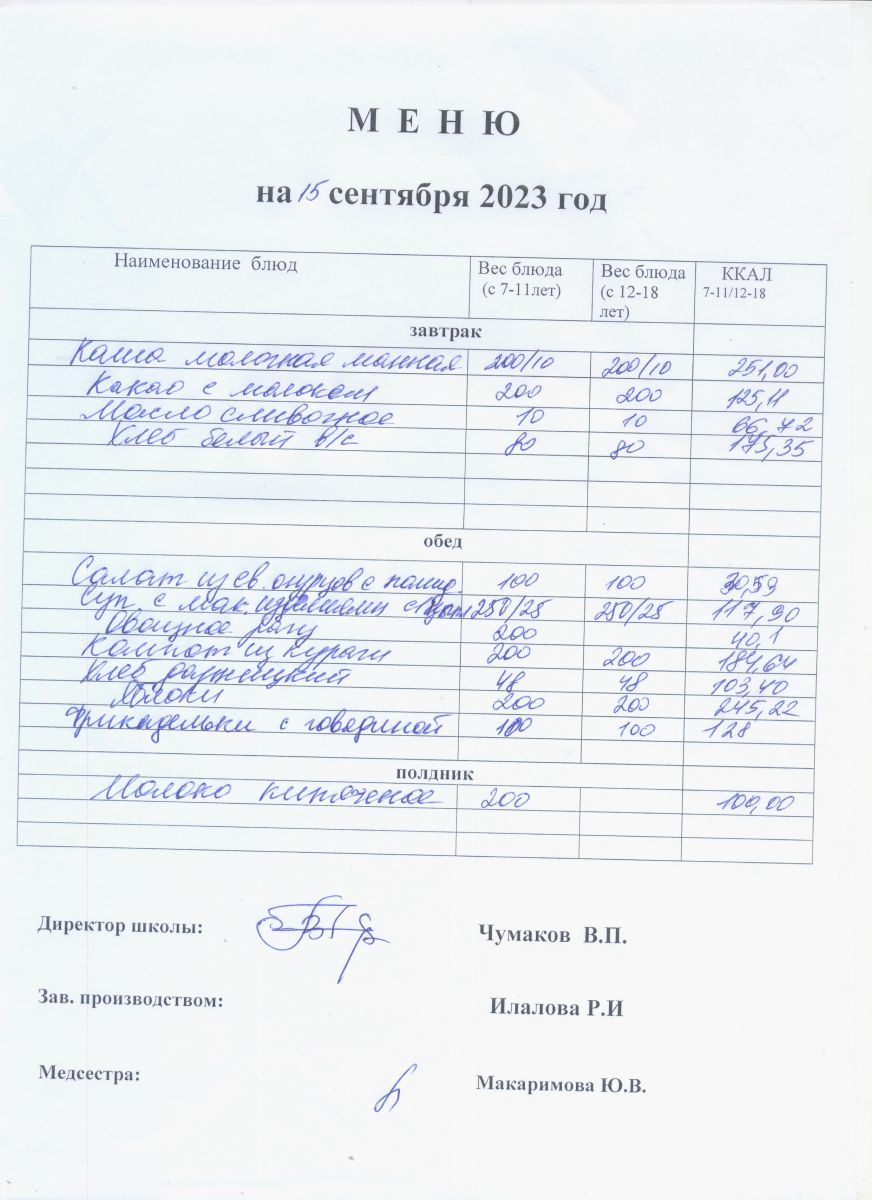 М Е Н Ю
на 15 сентября 2023 год
Наименование блюд Вес блюда (с 7-11лет) Вес блюда (с 12-18 лет) ККАЛ 7-11/12-18
завтрак
Каша молочная манная 200/10 200/10 251,00
Какао с молоком 200 200 125,11
Масло сливочное 10 10 66,72
Хлеб белый в/с 80 80 175,35
обед
Салат из св. огурцов с помид. 100 100 30,59
Суп с мак. изделиями с 250/25 250/25 117,90
Овощное рагу 200 40,1
Компот из кураги 200 200 184,64
Хлеб 48 48 103,40
Яблоки 200 200 245,22
Фрикадельки с говядиной 100 100 128
полдник
Молоко кипяченое 200 100,00
Директор школы: Чумаков В.П.
Зав. производством: Илалова Р.И
Медсестра: Макаримова Ю.В.